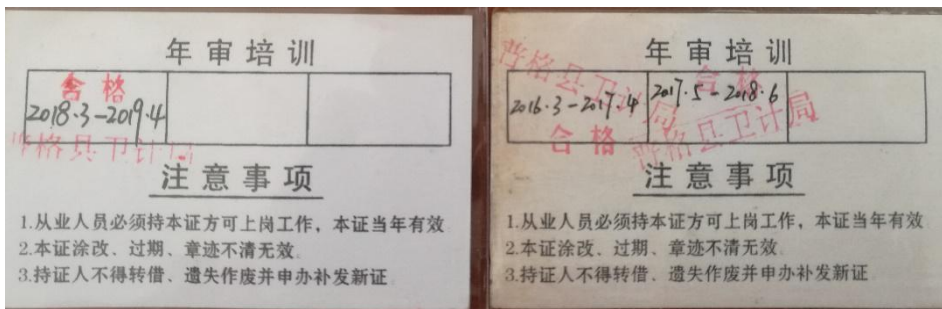 年审培训
合格
2018.3-2019.4
格县卫计局
注意事项
1.从业人员必须持本证方可上岗工作，本证当年有效
2.本证涂改、过期、章迹不清无效
3.持证人不得转借、遗失作废并申办补发新证
年审培训
格县卫计局
合格
2016.3-2017.4
2017.5-2018.6
合格
格县卫计局
注意事项
1.从业人员必须持本证方可上岗工作，本证当年有效
2.本证涂改、过期、章迹不清无效
3.持证人不得转借、遗失作废并申办补发新证